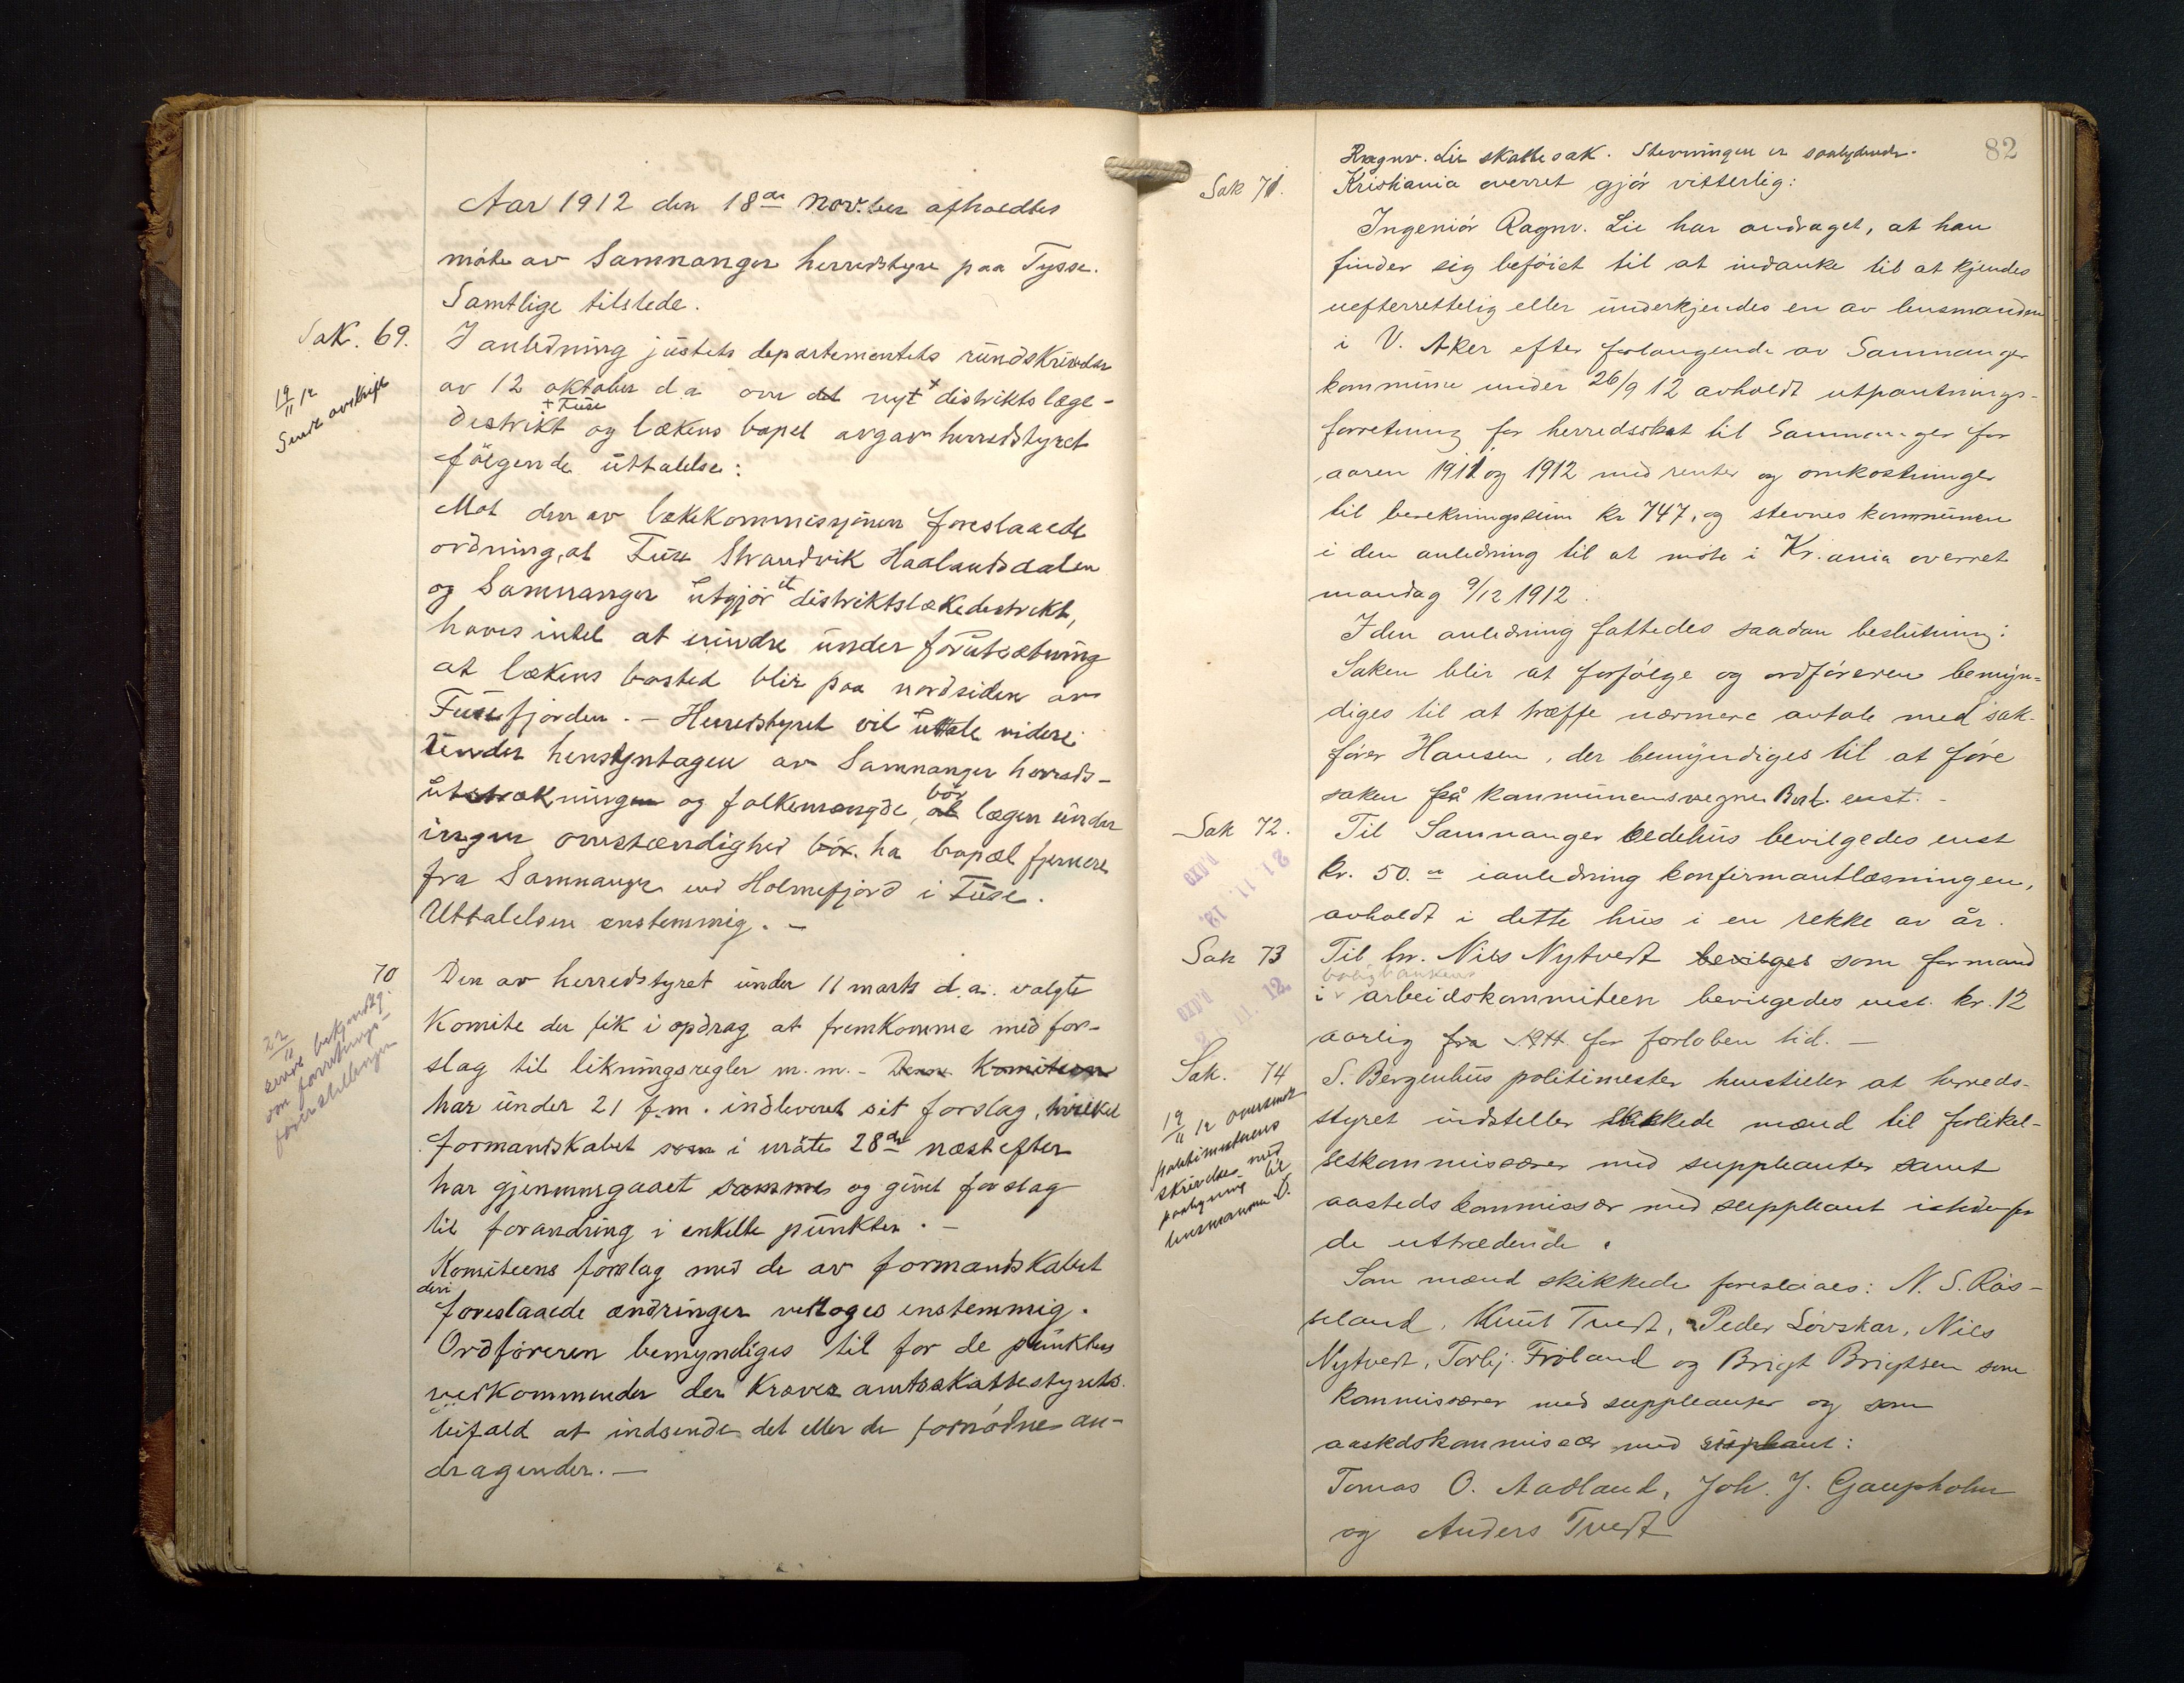 Aar 1912 den 18de Nov.ber afholdtes
møte av Samnanger herredstyre paa Tysse.
Samtlige tilstede.
Sak. 69.
I anledning justits departementets rundskrivelse
av 12 oktober d.a. om det nyt + distriktslæge-
+ Fuse
distrikt og lækens bopel avgav herredstyret
følgende uttalelse:
19/11 12
Sendt avskrift
Mot den av lækekommissjonen foreslaaede
ordning, at Fuse Strandvik Haalandsdalen
og Samnanger utgjør et distriktslækedistrikt,
haves intet at erindre under forutsætning
at lækens bosted blir paa nordsiden av
Fusefjorden. - Herredstyret vil uttale videre:
Under hensyntagen av Samnanger herreds-
utstrækningen og folkemængde, at bør lægen under
ingen omstændighed bør ha bopæl fjernere
fra Samnanger end Holmefjord i Fuse.
Uttalelsen enstemmig. -
70
Den av herredstyret under 11 marts d.a. valgte
Komite der fik i opdrag at fremkomme med for-
slag til likningsregler m.m. - Denne Komiteen
har under 21 f.m. indleveret sit forslag, hvilket
formandskabet som i møte 28de næst efter
har gjennemgaaet sammes og givet forslag
til forandring i enkelte punkter. -
22/11
sendt bekjendtg.
om forretnings-
Komiteens forslag med de av formandskabet
deri
foreslaaede ændringer vedtoges enstemmig.
Ordføreren bemyndiges til for de punkters
vedkommender der kræver amtsskattestyrets
bifald at indsende det eller de fornødne an-
dragender. -
82
Ragnv. Lie skattesak. Stevningen er saalydende.
Sak 71.
Kristiania overret gjør vitterlig:
Ingeniør Ragnv. Lie har andraget, at han
finder sig beføiet til at indanke til at kjendes
uefterrettelig eller underkjendes en av lensmanden
i V. Aker efter forlangende av Samnanger
kommune under 26/9 12 avholdt utpantnings-
forretning for herredsskat til Samnanger for
aaren 1911 og 1912 med renter og omkostninger
til berekningssum kr 747, og stevnes kommunen
i den anledning til at møte i Kr.ania overret
mandag 9/12 1912.
I den anledning fattedes saadan beslutning:
Saken blir at forfølge og ordføreren bemyn-
diges til at træffe nærmere avtale med sak-
fører Hansen, der bemyndiges til at føre
saken på kommunensvegne. Besl. enst. -
Sak 72.
Til Samnanger bedehus bevilgedes enst
kr. 50.00 i anledning konfirmantlæsningen,
avholdt i dette hus i en rekke av år.
21 11 12
Sak 73
Til hr. Nils Nytvedt bevilget som formand
boligbankens
i arbeidskommiteen bevilgedes enst. kr. 12
aarlig fra 1911 for forløben tid. -
21.11.12
Sak. 74
S. Bergenhus politimester henstiller at herreds-
styret indstiller skikkede mænd til forlikel-
seskommissærer med suppleanter samt
aasteds kommissær med suppleant istedenfor
de uttrædende.
19/11 12 oversendt
politimesterens
skrivelse med
paategning til
lensmannen
Som mænd skikkede foreslaaes: N. S. Røs-
seland, Knut Tvedt, Peder Løvskar, Nils
Nytvedt, Torbj. Frøland og Brigt Brigtsen som
kommissærer med suppleanter og som
aastedskommissær med suppleant:
Tomas O. Aadland, Joh. J. Gaupholm
og Anders Tvedt